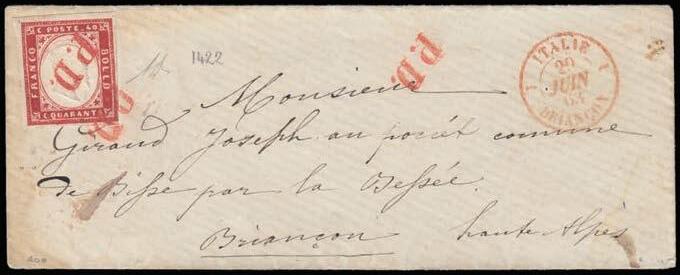 C. POSTE. 40
FRANCO
BOLLO
C. QUARANTA
P.D.
P.D.
P.D.
1422
1 ITALIE 1
29
JUIN
63
BRIANÇON
Monsieur
Giraud Joseph au poéét commune
de Bisse par la Bessée
Briançon haute Alpes